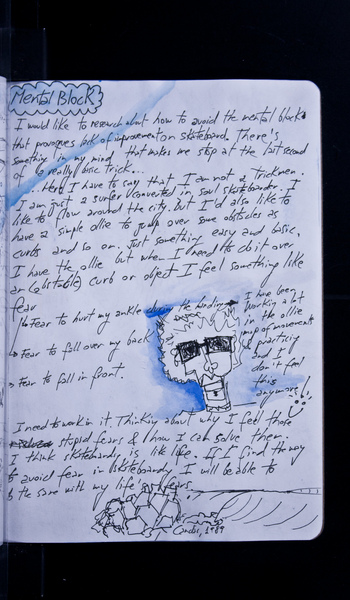 Mental Block
I would like to research about how to avoid the mental blocks
that provoques lack of improvement on skateboard. There's
something in my mind that makes me stop at the last second
of a really basic trick...
... Here I have to say that I am not a trickmen.
I am just a surfer converted in soul skateboarder. I
like to flow around the city. But I'd also like to
have a simple ollie to jump over some obstacles as
curbs and so on. Just something easy and basic.
I have the ollie but when I need to do it over
an (obstacle) curb or object I feel something like
fear
fear to hurt my ankle during the landing
fear to fall over my back
fear to fall in front.
I have been
working a lot
in the ollie
movements
practicing
and I
don't feel
this
anymore!
I need to work in it. Thinking about why I feel those
stupid fears & how I can solve them.
I think skateboardy is like life. If I find the way
to avoid fear in skateboardy I will be able to
do the same with my life's fears.
1989